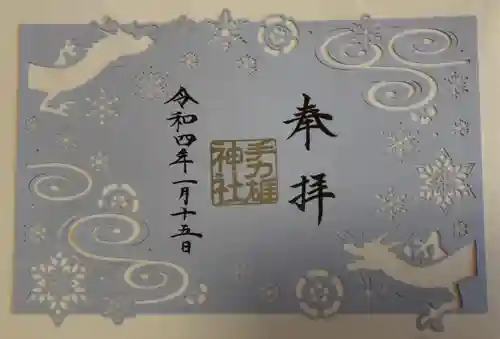 奉拝
手力雄神社
令和四年一月十五日